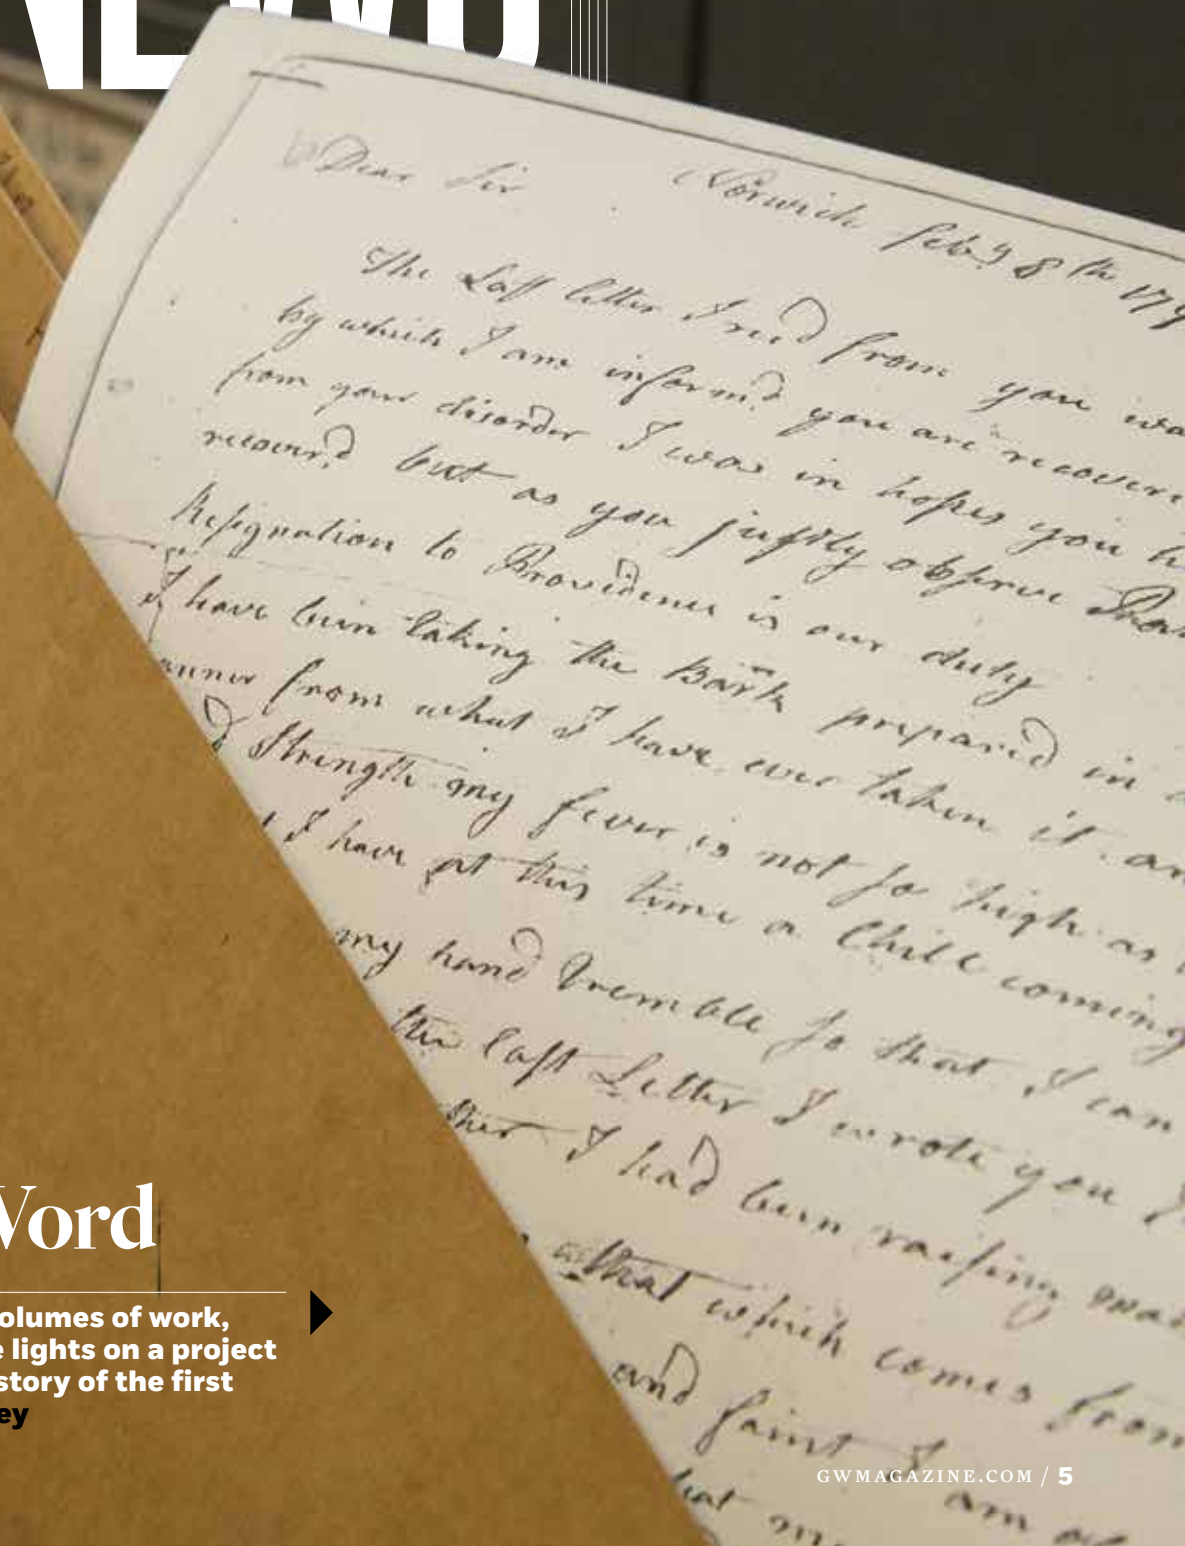 NEWS
Dear Sir Norwich feby 8th 179
The Last letter I recd from you wa
by which I am informd you are recovere
from your disorder I was in hopes you h
recoverd but as you justly observe
Resignation to Providence is our duty
I have been taking the Bark prepared in a
anner from what I have ever taken it an
d Strength my fever is not so high as
I have at this time a Chill coming
my hand tremble so that I can
the last Letter I wrote you
ther I had been raising mat
that which comes from
and faint I am
hat
Word
olumes of work,
e lights on a project
story of the first
ey
GWMAGAZINE.COM / 5